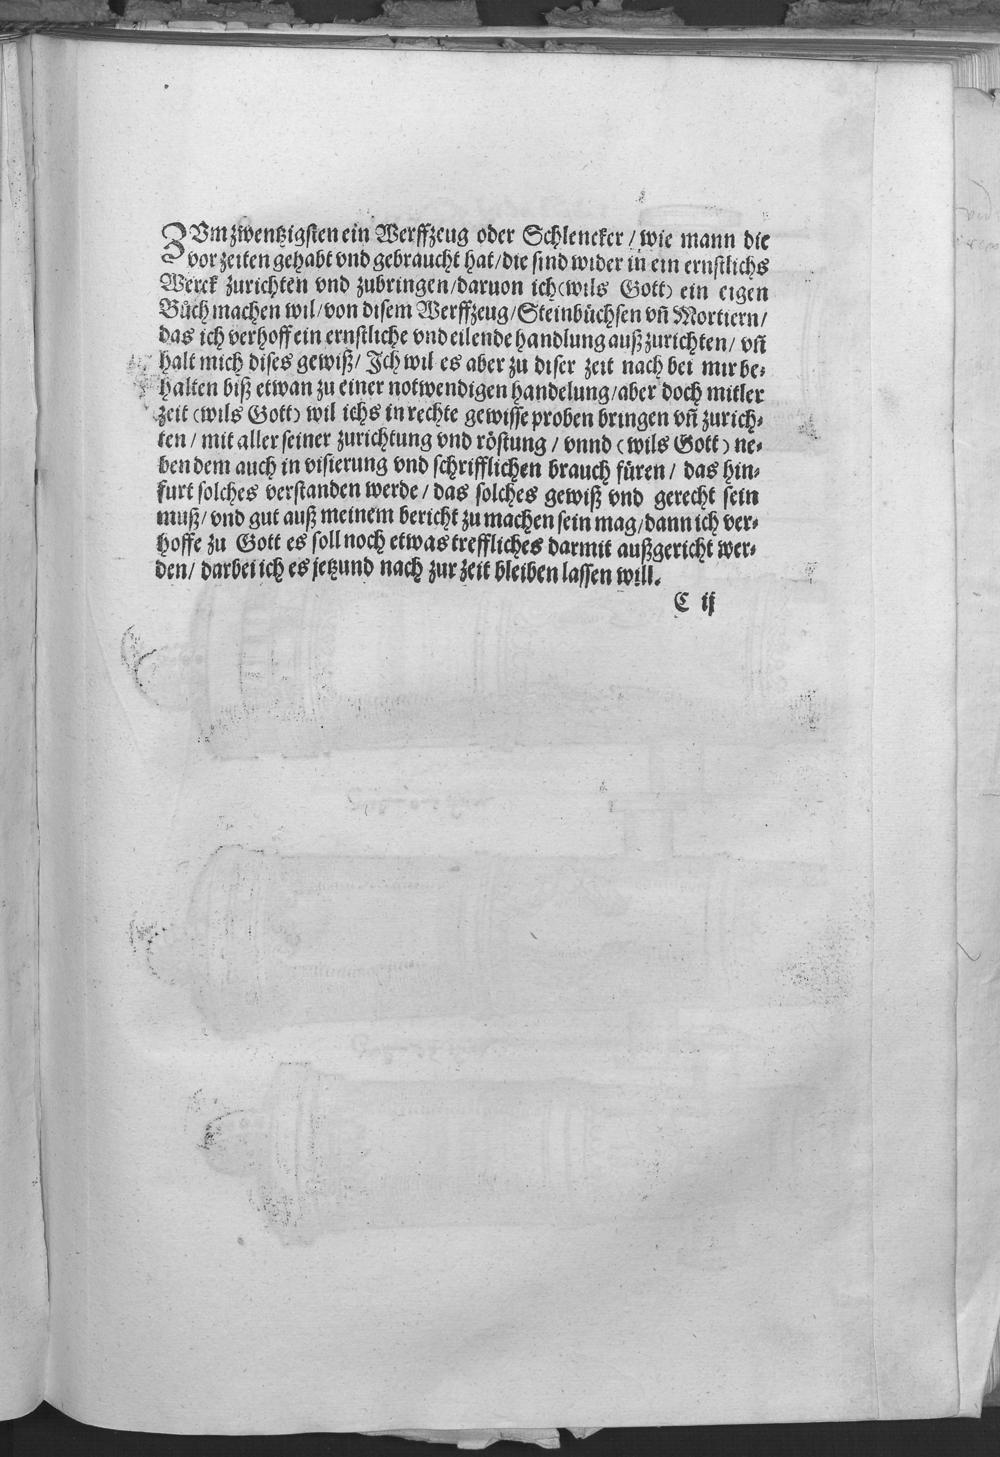 ZVm zwentzigsten ein Werffzeug oder Schlencker / wie mann die
vor zeiten gehabt vnd gebraucht hat / die sind wider in ein ernstlichs
Werck zurichten vnd zubringen / daruon ich (wils Gott) ein eigen
Bůch machen wil / von disem Werffzeug / Steinbüchsen vn̄ Mortiern /
das ich verhoff ein ernstliche vnd eilende handlung auß zurichten / vn̄
halt mich dises gewiß / Ich wil es aber zu diser zeit nach bei mir be⸗
halten biß etwan zu einer notwendigen handelung / aber doch mitler
zeit (wils Gott) wil ichs in rechte gewisse proben bringen vn̄ zurich⸗
ten / mit aller seiner zurichtung vnd röstung / vnnd (wils Gott) ne⸗
ben dem auch in visierung vnd schrifflichen brauch füren / das hin⸗
furt solches verstanden werde / das solches gewiß vnd gerecht sein
muß / vnd gut auß meinem bericht zu machen sein mag / dann ich ver⸗
hoffe zu Gott es soll noch etwas treffliches darmit außgericht wer⸗
den / darbei ich es jetzund nach zur zeit bleiben lassen will.
C ij